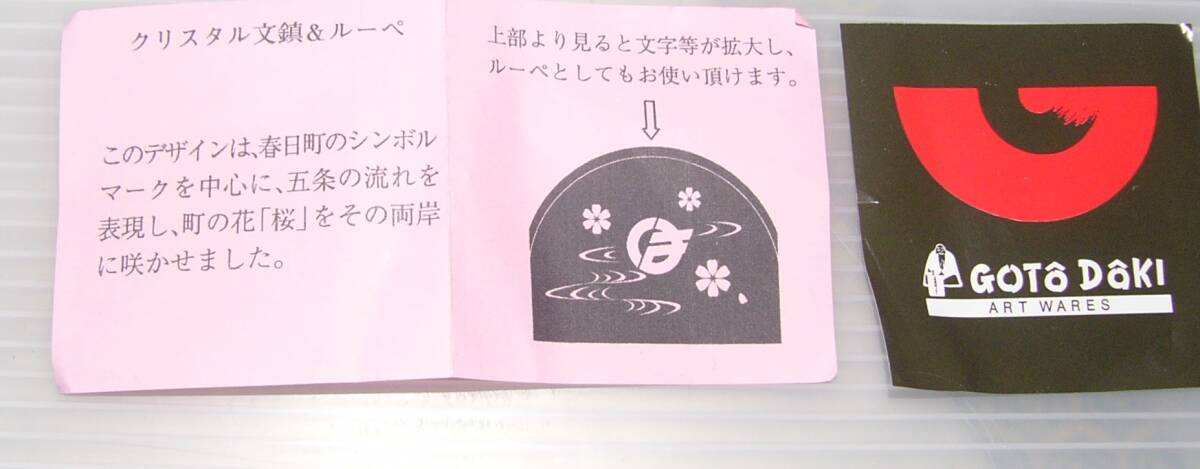 クリスタル文鎮&ルーペ
このデザインは、春日町のシンボル
マークを中心に、五条の流れを
表現し、町の花「桜」をその両岸
に咲かせました。
上部より見ると文字等が拡大し、
ルーペとしてもお使い頂けます。
GOTÔ DÂKI
ART WARES